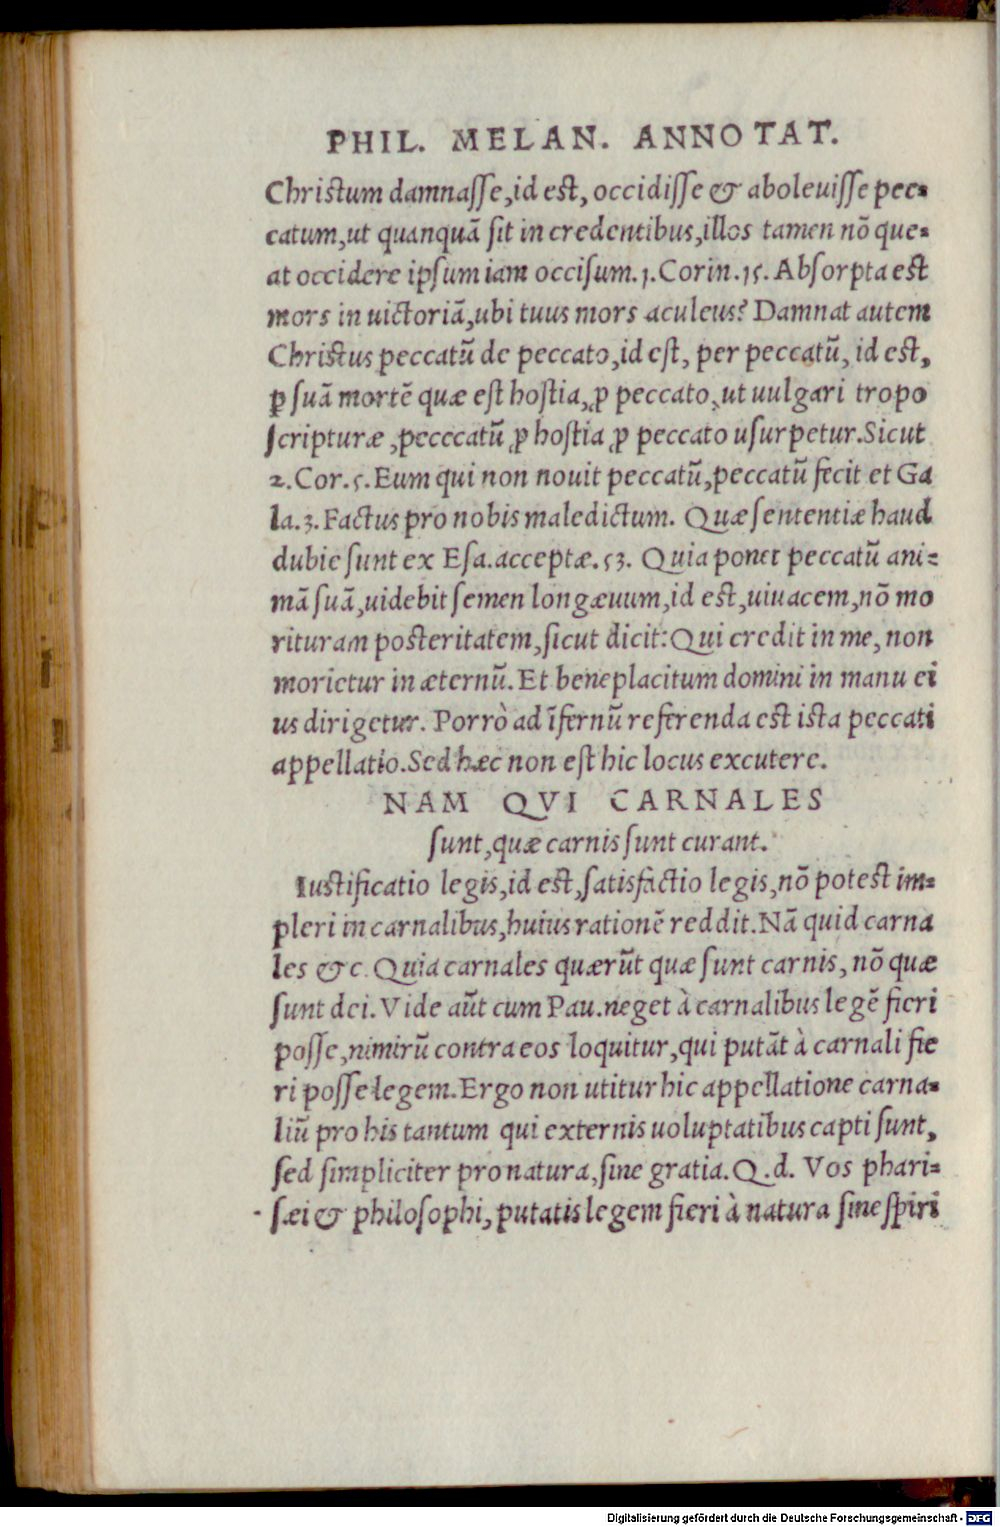 PHIL. MELAN. ANNOTAT.
Christum damnasse, id est, occidisse & aboleuisse pec-
catum, ut quanquã sit in credentibus, illos tamen nõ que-
at occidere ipsum iam occisum. 1. Corin. 15. Absorpta est
mors in uictoriã, ubi tuus mors aculeus? Damnat autem
Christus peccatũ de peccato, id est, per peccatũ, id est,
ꝑ suã mortẽ quæ est hostia, ꝓ peccato, ut uulgari tropo
scripturæ, pecccatũ ꝓ hostia ꝓ peccato usurpetur. Sicut
2. Cor. 5. Eum qui non nouit peccatũ, peccatũ fecit et Ga
la. 3. Factus pro nobis maledictum. Quæ sententiæ haud
dubie sunt ex Esa. acceptæ. 53. Quia ponet peccatũ ani-
mã suã, uidebit semen longæuum, id est, uiuacem, nõ mo
rituram posteritatem, sicut dicit: Qui credit in me, non
morietur in æternũ. Et beneplacitum domini in manu ei
us dirigetur. Porrò ad ĩfernũ referenda est ista peccati
appellatio. Sed hæc non est hic locus excutere.
NAM QVI CARNALES
sunt, quæ carnis sunt curant.
Iustificatio legis, id est, satisfactio legis, nõ potest im-
pleri in carnalibus, huius rationẽ reddit. Nã quid carna
les &c. Quia carnales quærũt quæ sunt carnis, nõ quæ
sunt dei. Vide aũt cum Pau. neget à carnalibus legẽ fieri
posse, nimirũ contra eos loquitur, qui putãt à carnali fie
ri posse legem. Ergo non utitur hic appellatione carna-
liũ pro his tantum qui externis uoluptatibus capti sunt,
sed simpliciter pro natura, sine gratia. Q. d. Vos phari-
sæi & philosophi, putatis legem fieri à natura sine spiri
Digitalisierung gefördert durch die Deutsche Forschungsgemeinschaft - DFG